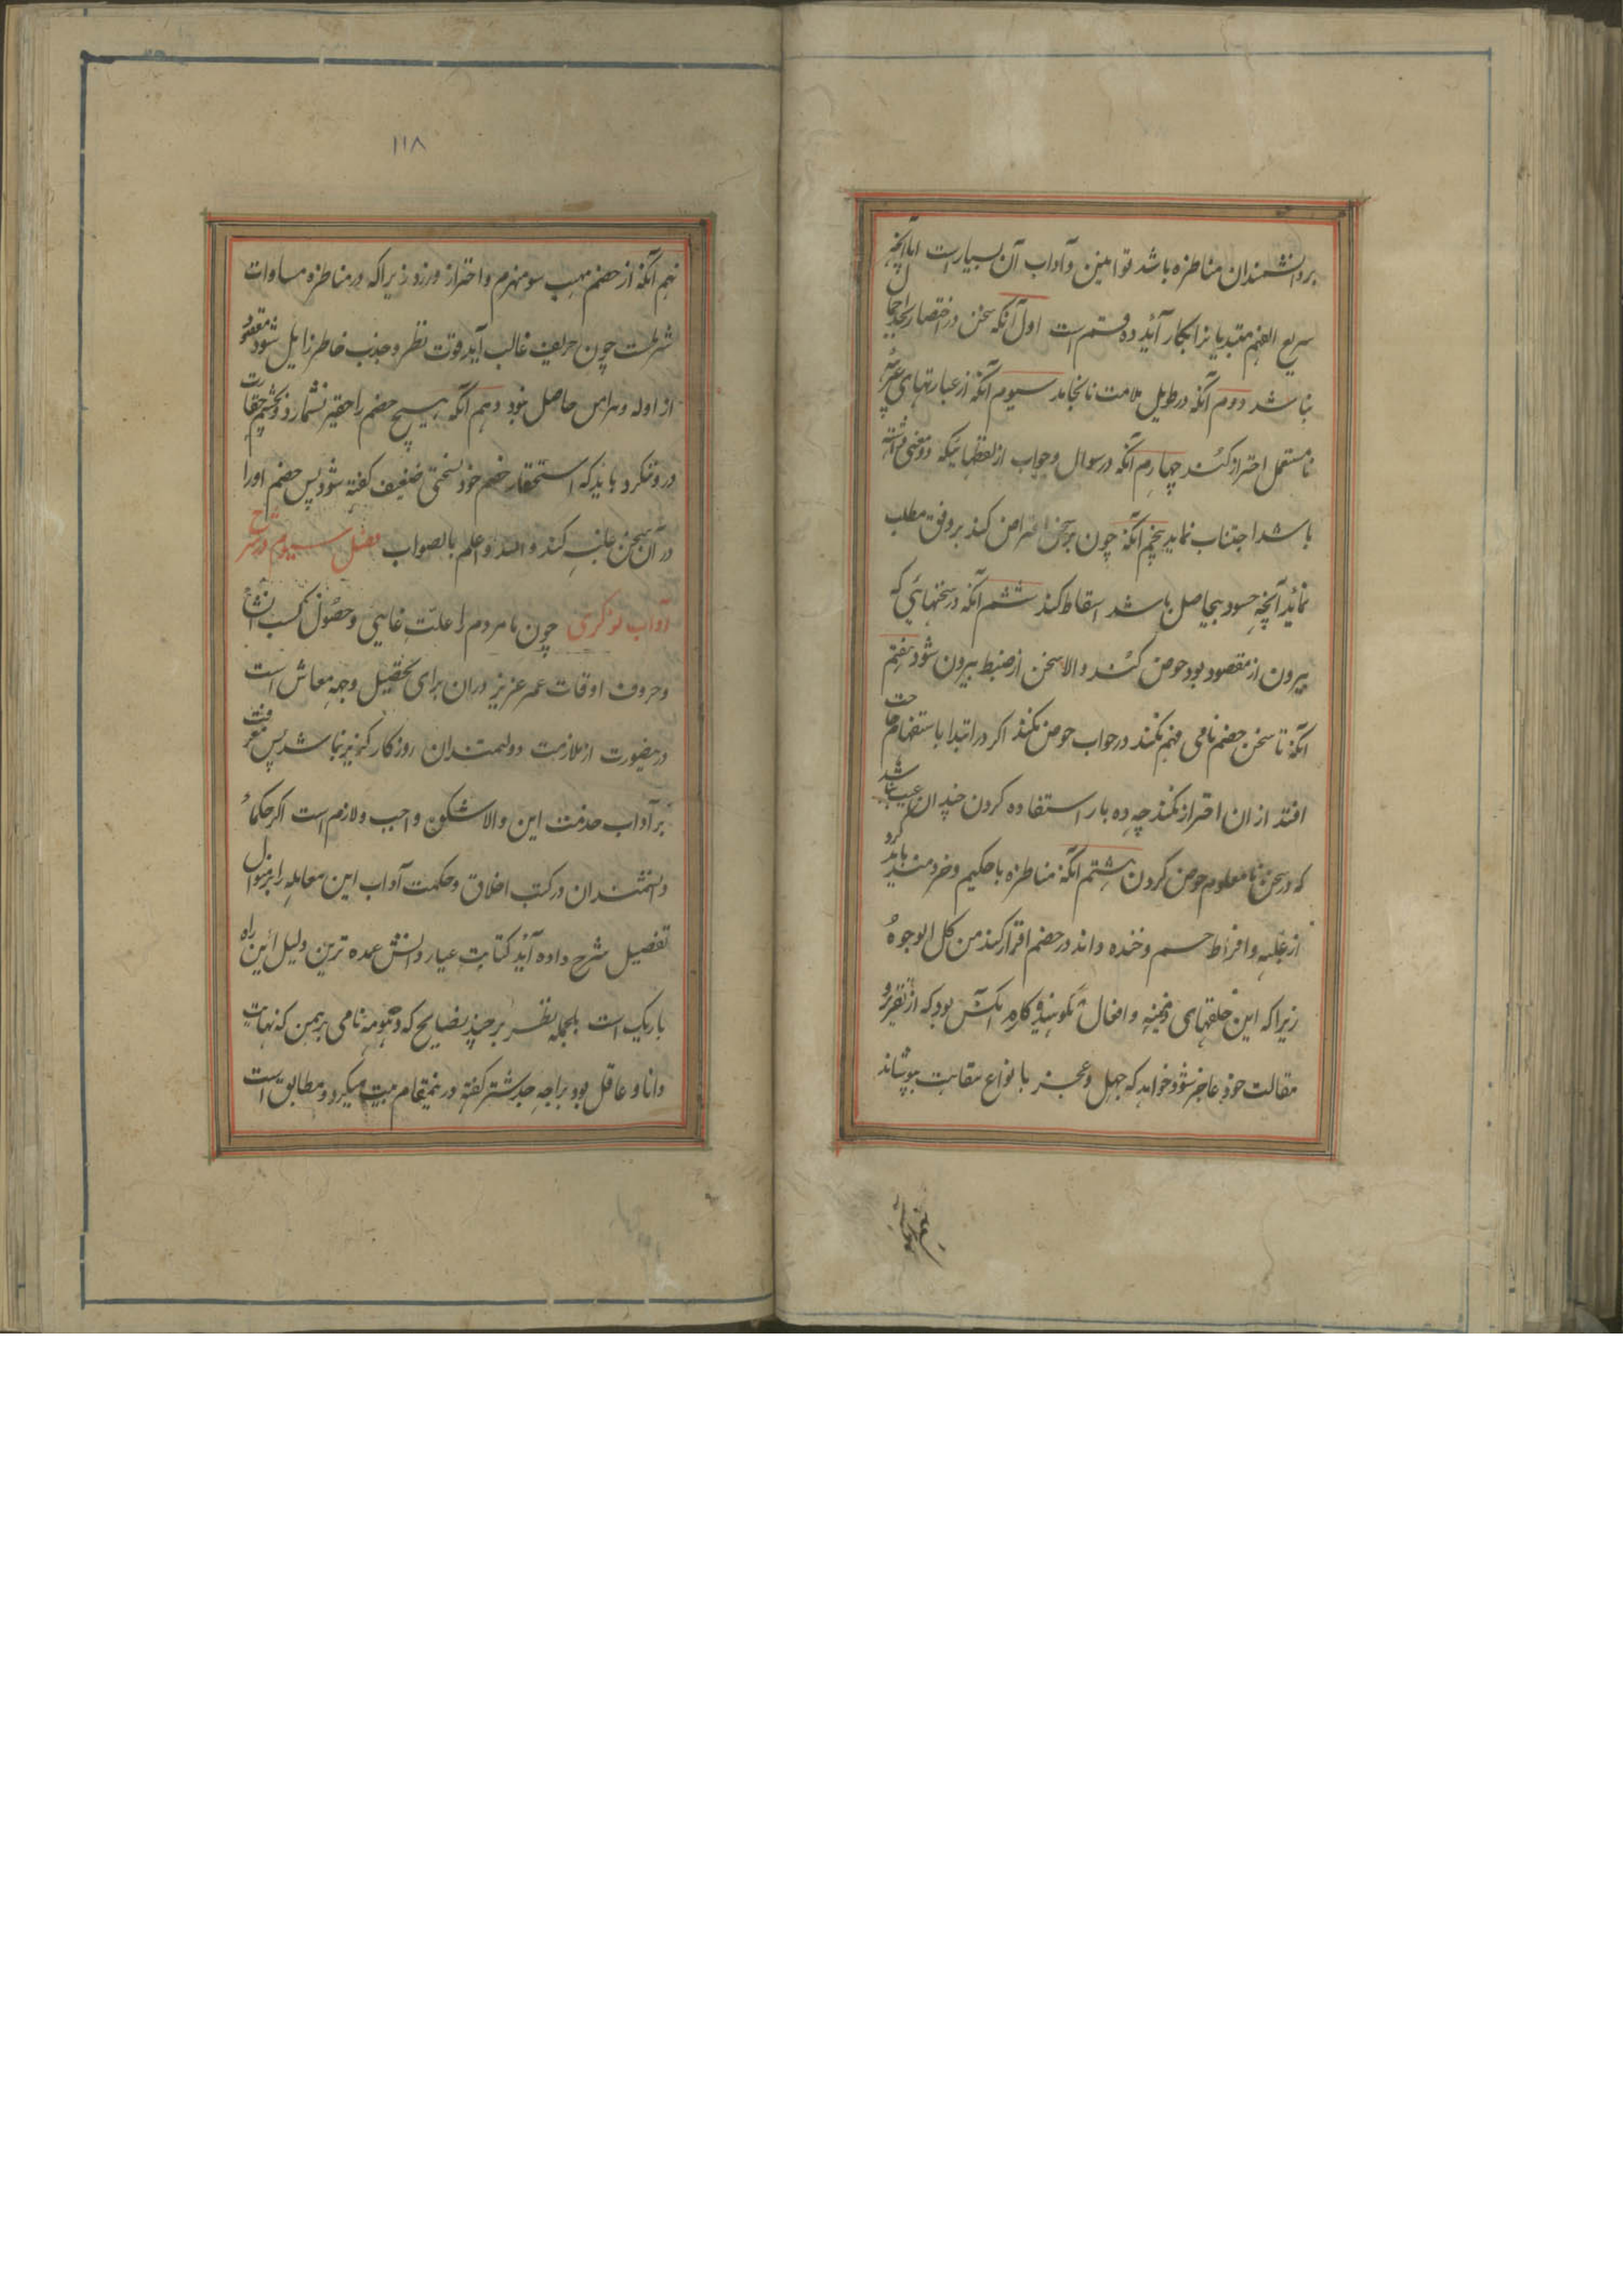 بر دانشمندان مناظره باشد قوانین و آداب آن بسیار است اما آنچه
سریع الفهم مبتدیانرا بکار آید ده قسم است اول آنکه سخن در اختصار بحد اجمال
نباشد دوم آنکه در طویل ملامت نانجامد سیوم آنکه از عبارتهای غیر
نامستعمل احتراز کند چهارم آنکه در سوال و جواب از لفظهائیکه ذو معنی
باشد اجتناب نماید پنجم آنکه چون بر سخن اعتراض کند بر وفق مطلب
نماید آنچه حسود بیحاصل باشد اسقاط کند ششم آنکه در سخنهائی که
بیرون از مقصود بود خوض کند والا سخن از ضبط بیرون شود هفتم
آنکه تا سخن خصم نامی فهم نکند در جواب خوض نکند اگر در ابتدا باستفهام حاجت
افتد از ان احتراز نکند چه ده بار استفاده کردن چندان عیب نباشد
که در سخن نامعلوم خوض کردن هشتم آنکه مناظره با حکیم و خردمند باید کرد
از غلبه و افراط خشم و خنده داند در خصم اقرار کند من کل الوجوه
زیرا که این خلقهای ذمیمه و افعال نکوهیده کار آنکس بود که از تقریر و
مقالت خود عاجز شود و خواهد که جهل و عجز با نواع بپوشاند
نهم آنکه
۱۱۸
نهم آنکه از خصم مهیب سو منهزم و احتراز ورزد زیرا که در مناظره مساوات
شرطست چون حریف غالب آید قوت نظر و جذب خاطر زایل شود مقصود
از اوله و هراس حاصل نبود دهم آنکه هیچ خصم را حقیر نشمارد و بچشم حقارت
درو ننگرد باید که استحقار خصم خود سخنی ضعیف گفته شود پس خصم او را
در آن سخن غلبه کند والله اعلم بالصواب فصل سیوم در شرح
آداب نوکری چون نامردم را علت غایی و حصول کسب
و حروف اوقات عمر عزیز دران برای تحصیل وجه معاش است
درینصورت از ملازمت دولتمندان روزگار گزیر نباشد پس معرفت
بر آداب خدمت این والا شکون واجب و لازم است اگر حکماء
دانشمندان در کتب اخلاق و حکمت آداب این معامله را بر منوال
تفصیل شرح داده آید کتابت عیار دانش عمده ترین دلیل این راه
باریک است بالجمله نظر بر چند نصایح که دهومه نامی برهمن که نهایت
دانا و عاقل بود براجه جدشتر گفته درینمقام ثبت میگردد مطابق است